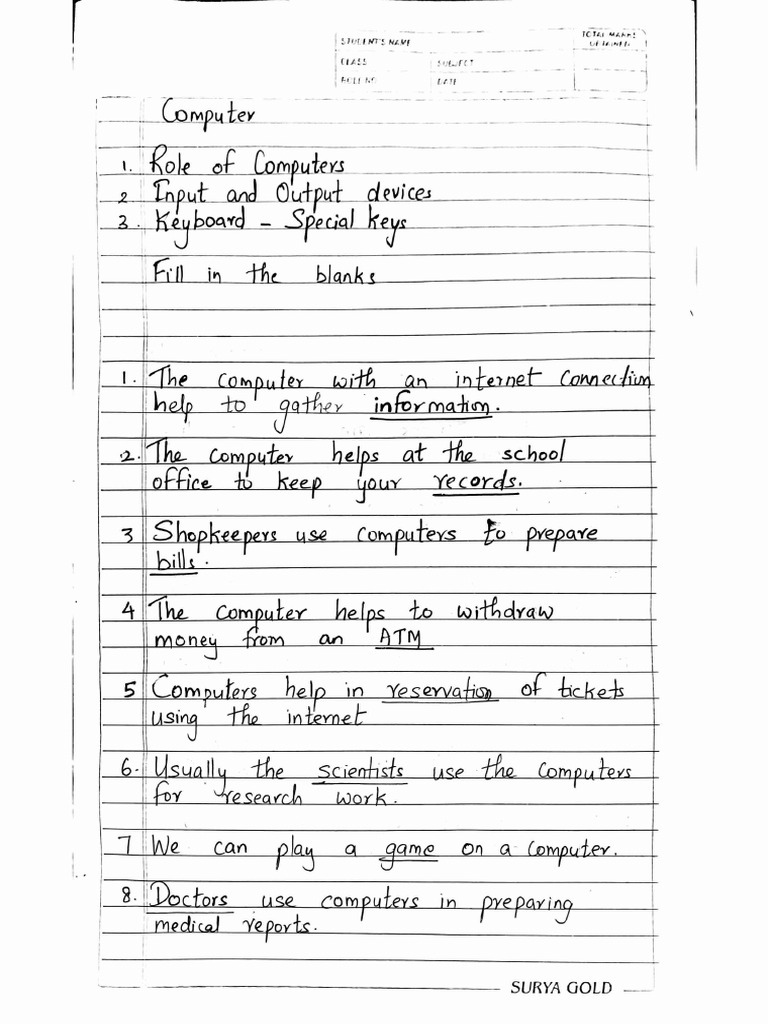 STUDENT'S NAME
TOTAL MARKS
OBTAINED
CLASS SUBJECT
ROLL NO. DATE
Computer
1. Role of Computers
2 Input and Output devices
3. Keyboard - Special keys
Fill in the blanks
1. The computer with an internet connection
help to gather information.
2. The computer helps at the school
office to keep your records.
3 Shopkeepers use computers to prepare
bills.
4 The computer helps to withdraw
money from an ATM
5 Computers help in reservation of tickets
using the internet
6. Usually the scientists use the computers
for research work.
7 We can play a game on a computer.
8. Doctors use computers in preparing
medical reports.
SURYA GOLD